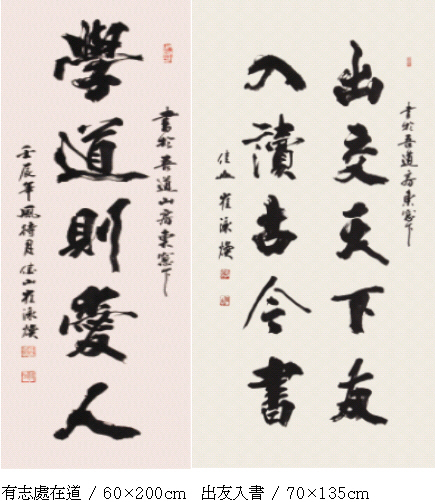 書於吾道山齋東窓下
學道則愛人
壬辰年風待月佳山崔泳煥
書於吾道齋東窓下
出交天下友
入讀古今書
佳山 崔泳煥
有志處在道 / 60×200cm
出友入書 / 70×135cm